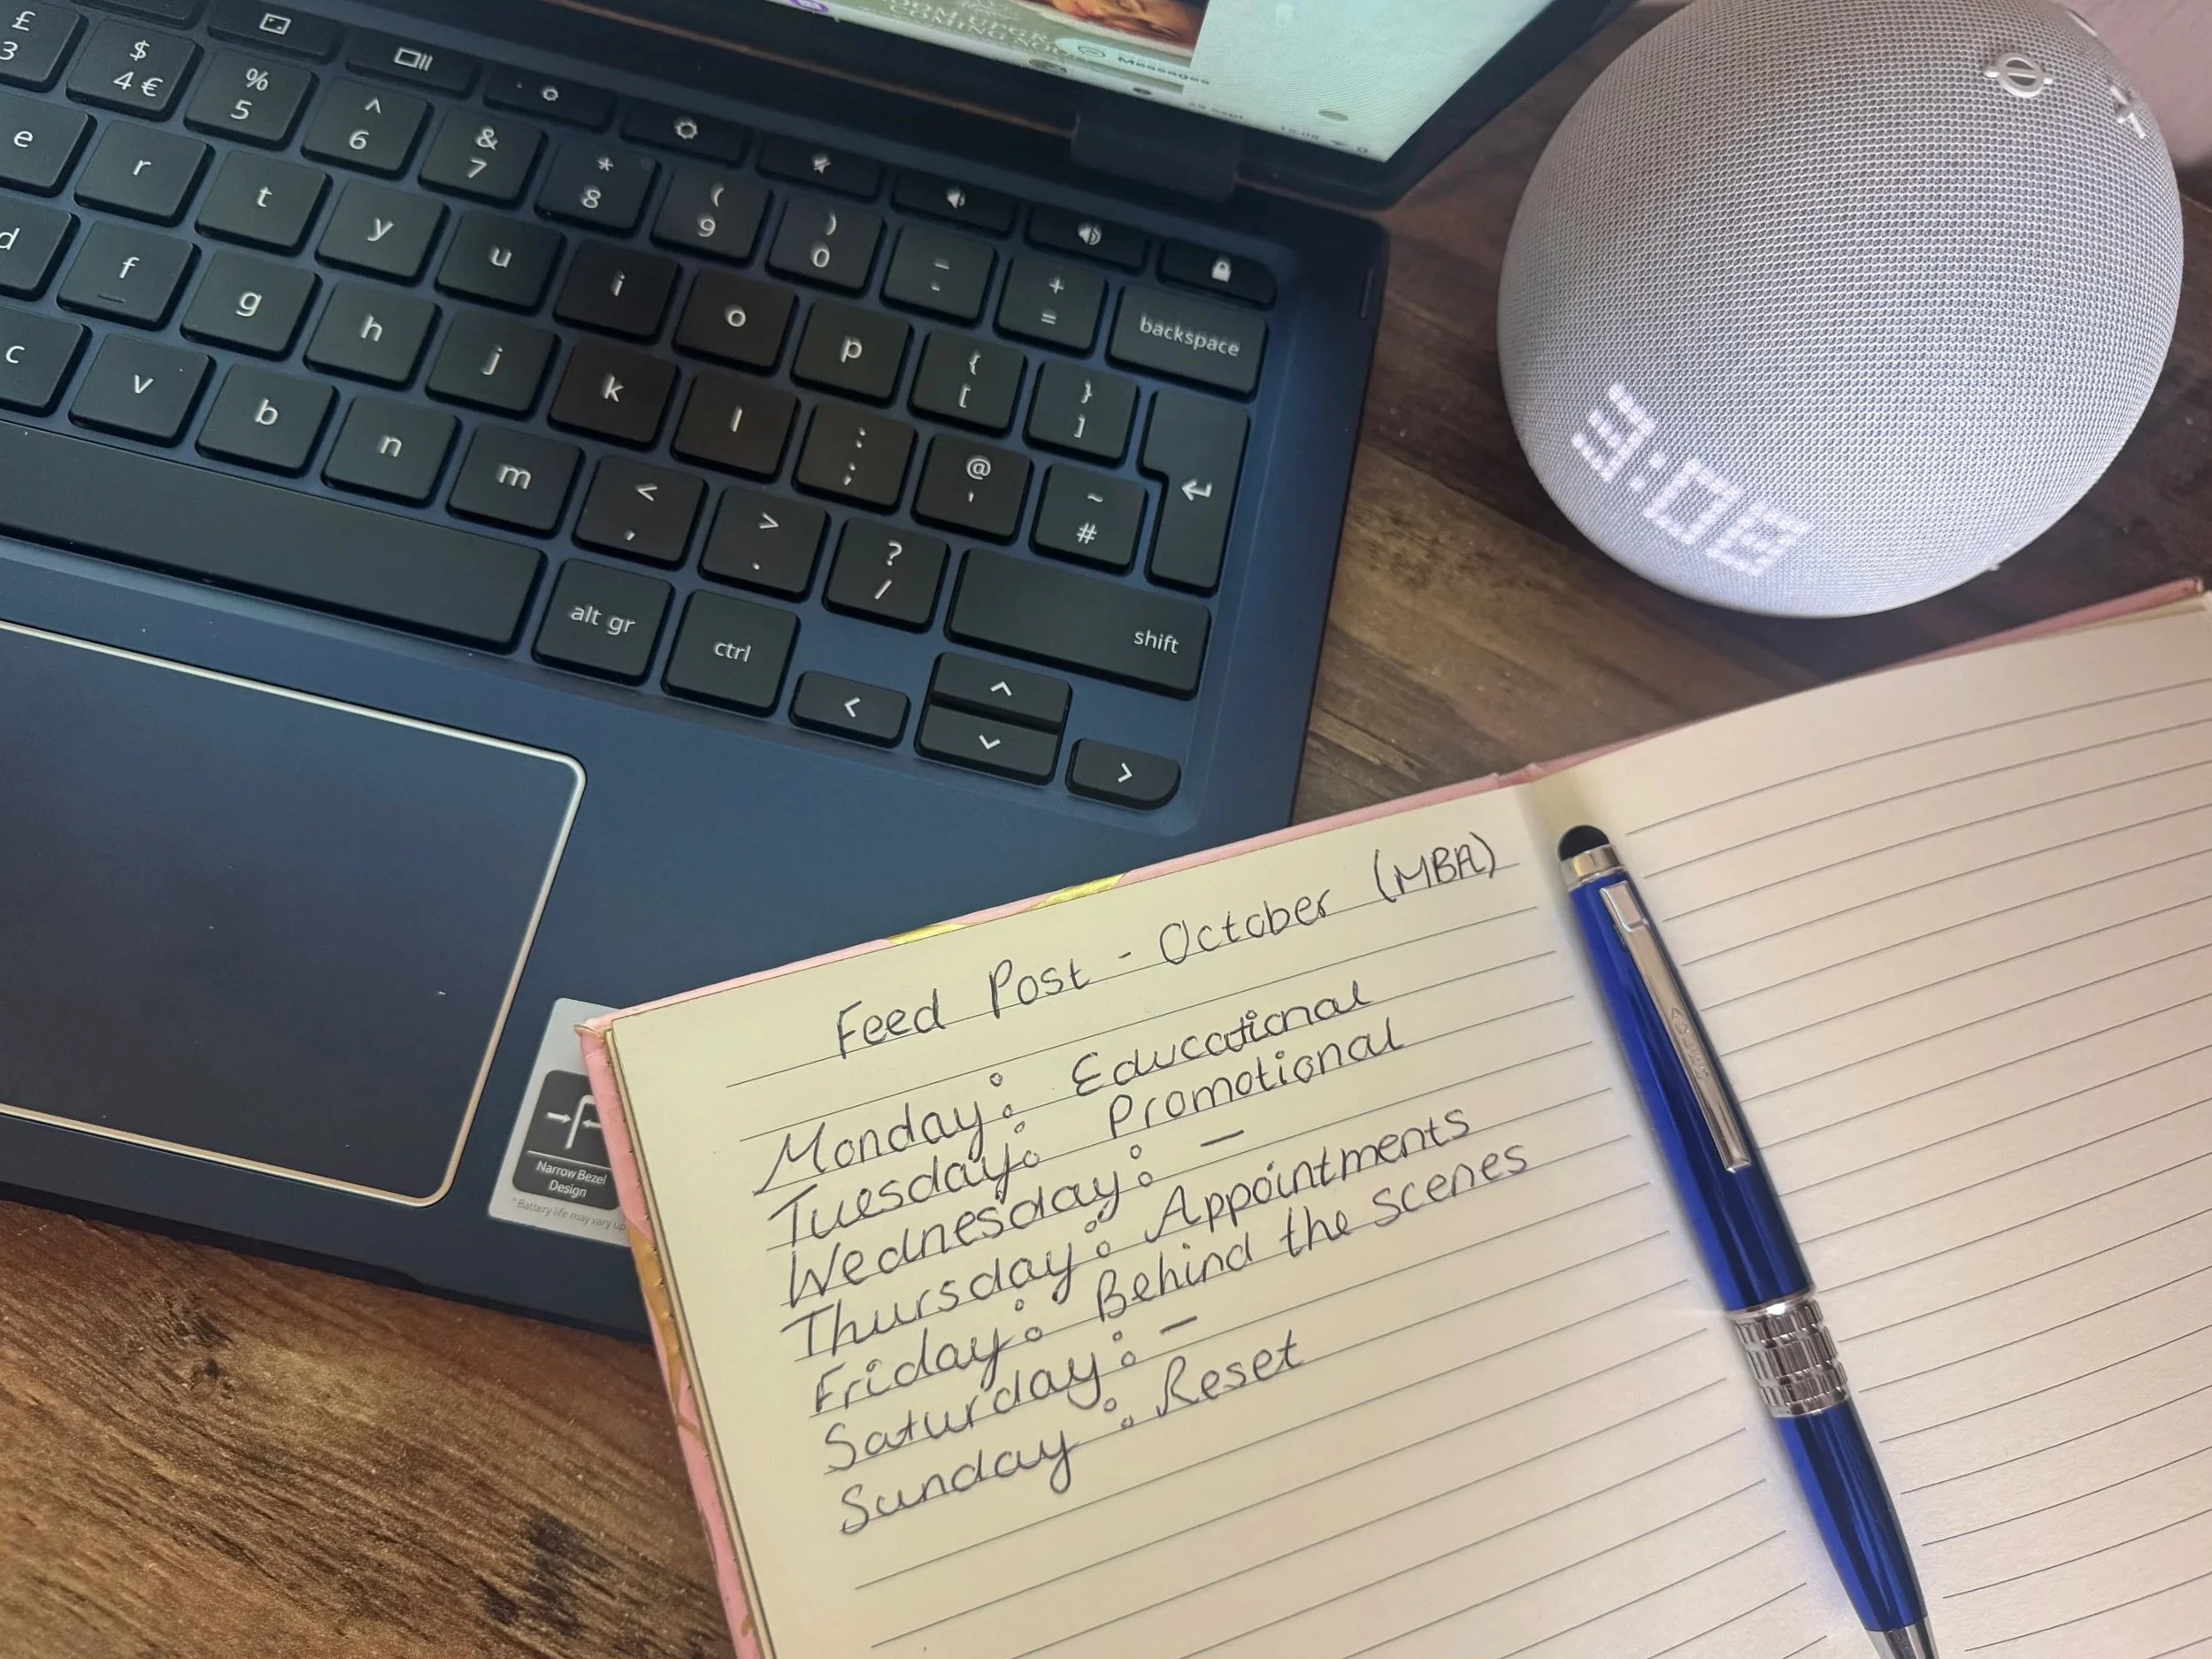 £
3
$
4 €
%
5
^
6
&
7
*
8
(
9
)
0
_
-
+
=
backspace
e
r
t
y
u
i
o
p
{
[
}
]
d
f
g
h
j
k
l
:
;
@
'
~
#
c
v
b
n
m
<
,
>
.
?
/
shift
alt gr
ctrl
COMING SO
Messages
3:08
Narrow Bezel
Design
* Battery life may vary up
Feed Post - October (MBA)
Monday: Educational
Tuesday: Promotional
Wednesday: -
Thursday: Appointments
Friday: Behind the scenes
Saturday: -
Sunday: Reset